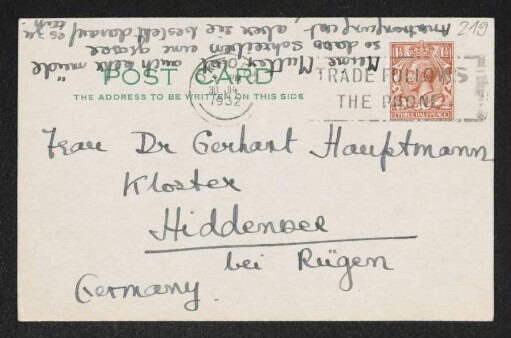 219
Meine Mutter ist auch sehr müde
so dass schreiben eine grosse
Anstrengung ist, aber sie besteht darauf es zu
tun
POST CARD
THE ADDRESS TO BE WRITTEN ON THIS SIDE
1932
TRADE FOLLOWS
THE PHONE
THREE HALFPENCE
Frau Dr Gerhart Hauptmann
Kloster
Hiddensee
bei Rügen
Germany.